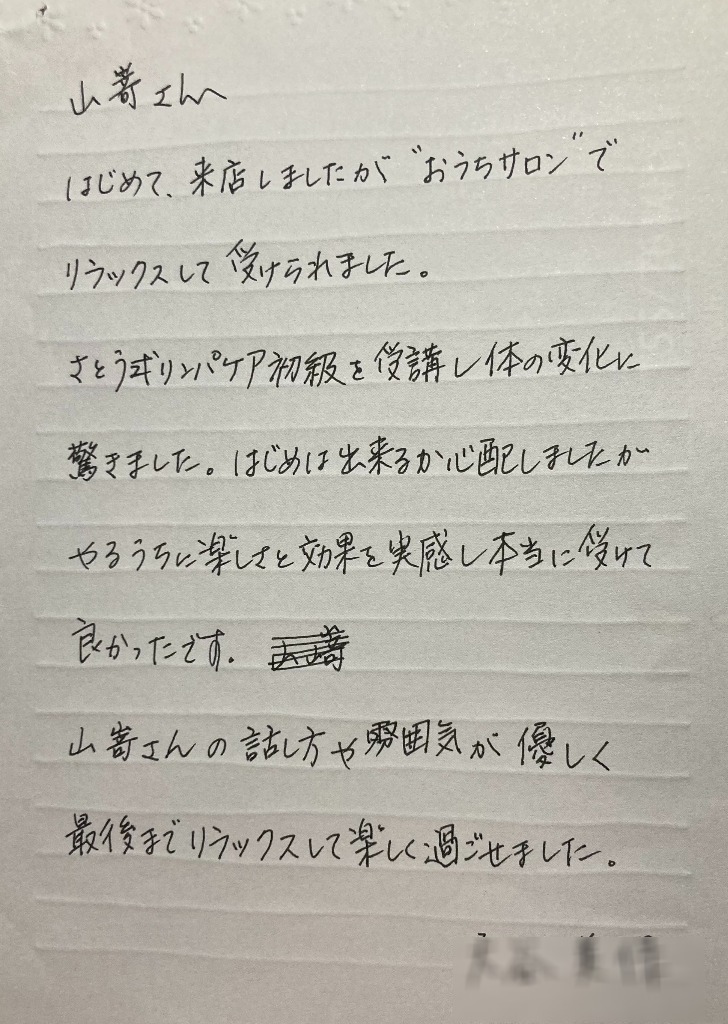 山嵜さんへ
はじめて、来店しましたが“おうちサロン”で
リラックスして受けられました。
さとう式リンパケア初級を受講し体の変化に
驚きました。はじめは出来るか心配しましたが
やるうちに楽しさと効果を実感し本当に受けて
良かったです。
山嵜さんの話し方や雰囲気が優しく
最後までリラックスして楽しく過ごせました。